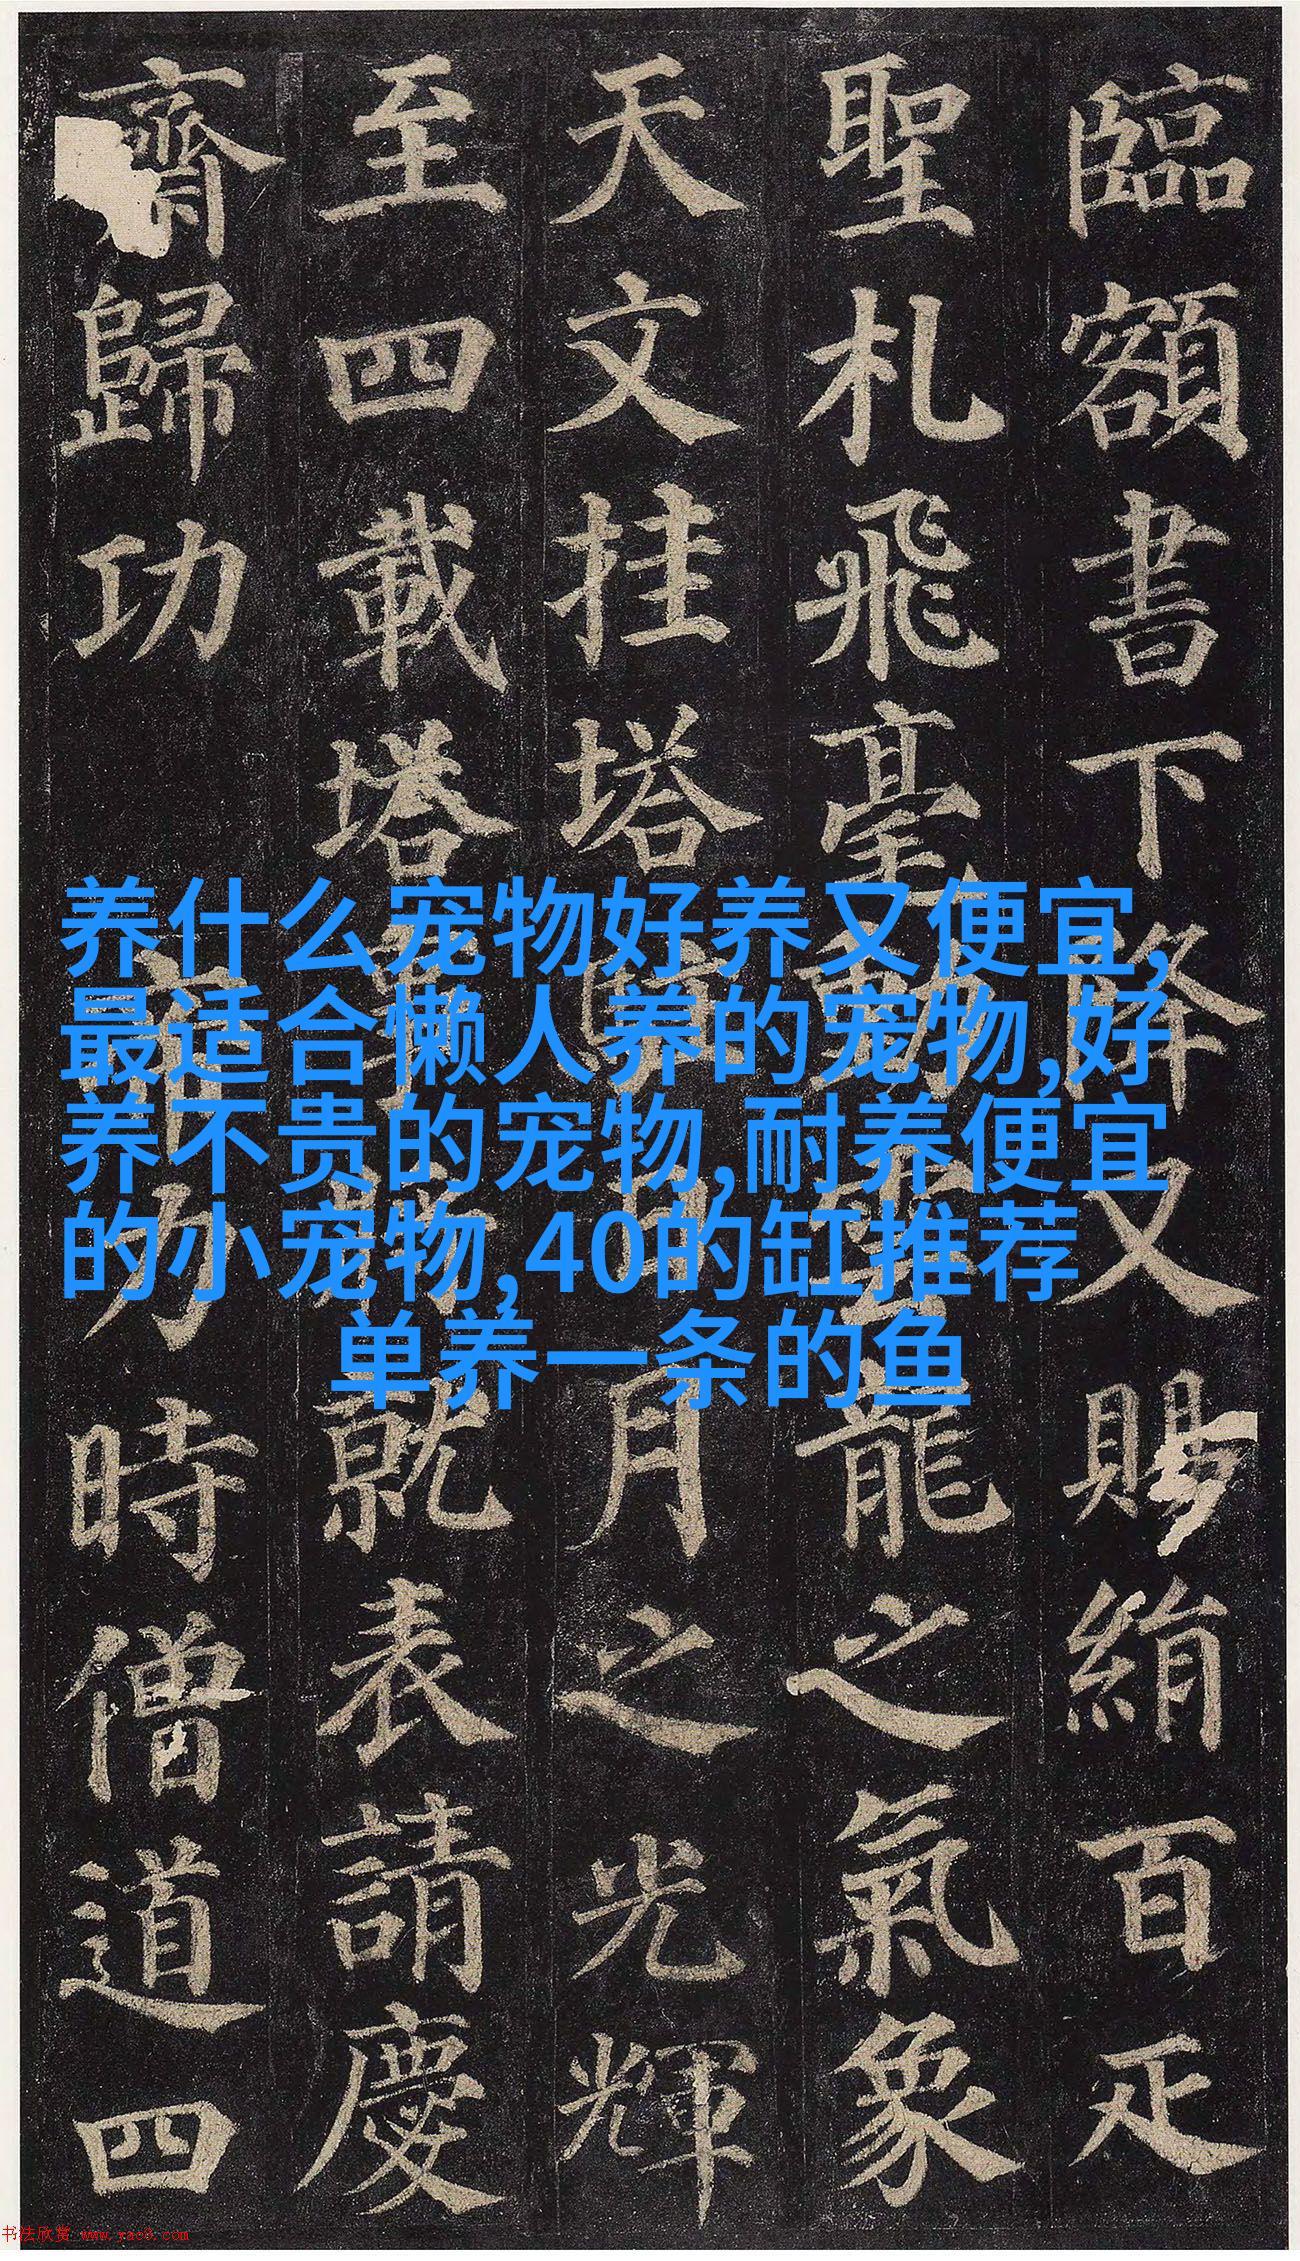 臨額書下降又賜絹百疋
聖札飛毫動雲龍之氣象
天文挂塔駐日月之光輝
至四載塔事將就表請慶
齋歸功帝力時僧道四
养什么宠物好养又便宜,
最适合懒人养的宠物,好
养不贵的宠物,耐养便宜
的小宠物,40的缸推荐
单养一条的鱼
书法欣赏 www.yac8.com